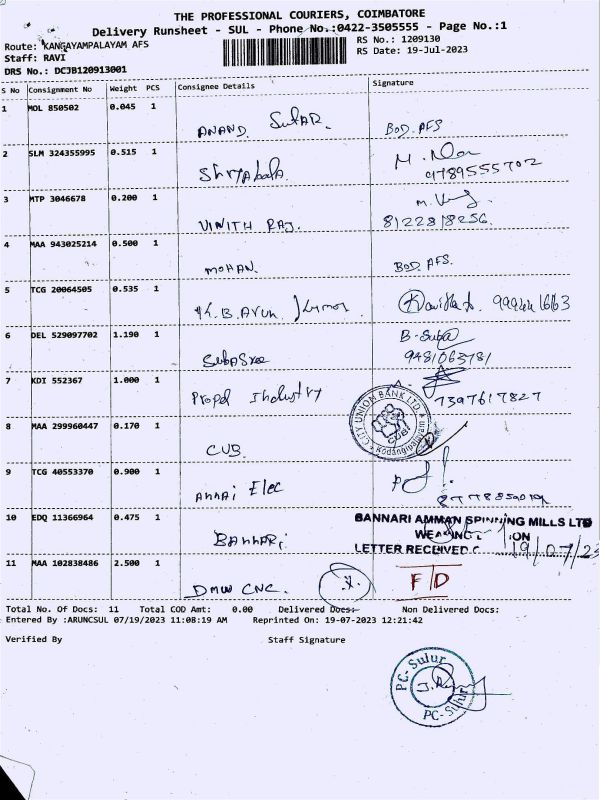 THE PROFESSIONAL COURIERS, COIMBATORE
Delivery Runsheet - SUL - Phone No.:0422-3505555 - Page No.:1
Route: KANGAYAMPALAYAM AFS
RS No.: 1209130
Staff: RAVI
RS Date: 19-Jul-2023
DRS No.: DCJB120913001
S No Consignment No Weight PCS Consignee Details Signature
1 MOL 850502 0.045 1
ANAND BOD. AFS
2 SLM 324355995 0.515 1
9789555702
3 MTP 3046678 0.200 1
VINITH RAJ. 8122818256.
4 MAA 943025214 0.500 1
MOHAN. BOD AFS.
5 TCG 20064505 0.535 1
B. Arun
6 DEL 529097702 1.190 1
B-Suba
SubaSree 9481063781
7 KDI 552367 1.000 1
Propel Industry 7397617827
8 MAA 299960447 0.170 1
CITY UNION BANK LTD.
CUB
Kodangipalayam
CUB
9 TCG 40553370 0.900 1
Annai Elec
10 EDQ 11366964 0.475 1
BANNARI AMMAN SPINNING MILLS LTD
LETTER RECEIVED 19/07/23
BANNARI
11 MAA 102838486 2.500 1
DMW CNC. FTD
Total No. Of Docs: 11 Total COD Amt: 0.00 Delivered Docs: Non Delivered Docs:
Entered By :ARUNCSUL 07/19/2023 11:08:19 AM Reprinted On: 19-07-2023 12:21:42
Verified By Staff Signature
PC-Sulur
PC-Sulur